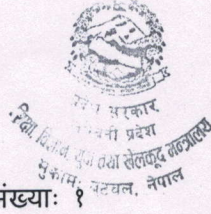 प्रदेश सरकार
शिक्षा, विज्ञान, युवा तथा खेलकुद मन्त्रालय
मुकामः बुटवल, नेपाल
संख्याः १